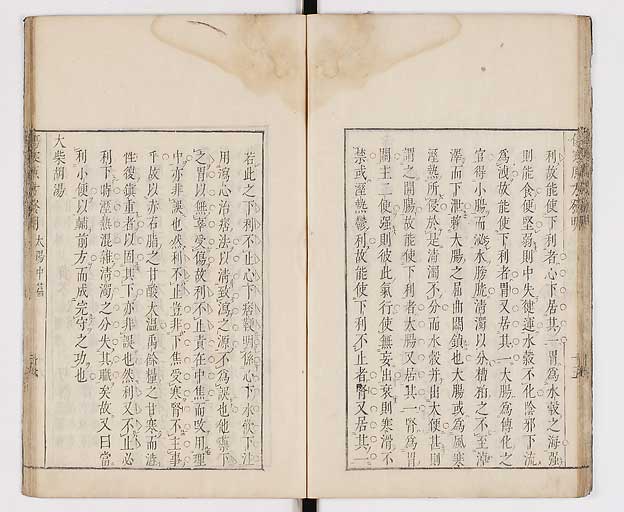 利故能使下利者心下居其一胃為水穀之海强
則能食便堅弱則中失健運水穀不化陰邪下流
為洩故能使下利者胃又居其一大腸為傳化之
官得小腸而泌水膀胱清濁以分糟粕之不至滓
澤而下泄賴大腸之屈曲關鎖也大腸或為風寒
溼熱所侵於是清濁不分而水穀并由大便甚則
謂之開腸故能使下利者大腸又居其一腎為胃
關主二便强則彼此氣行使無妄出衰則寒滑不
禁或溼熱鬱利故能使下利不止者腎又居其一
若此之下利不止心下痞鞕明係心下水飲下注
用瀉心治痞法以清致瀉之源不為誤也他藥下
之胃以無辜受傷故利不止責在中焦而改用理
中亦非誤也然利不止豈非下焦受寒腎不主事
乎故以赤石脂之甘酸大溫禹餘糧之甘寒而濇
性復鎮重者以固其下亦非誤也然利又不止必
利下時溼熱混雜清濁之分失其職矣故又曰當
利小便以輔前方而成完守之功也
大柴胡湯
太陽中篇